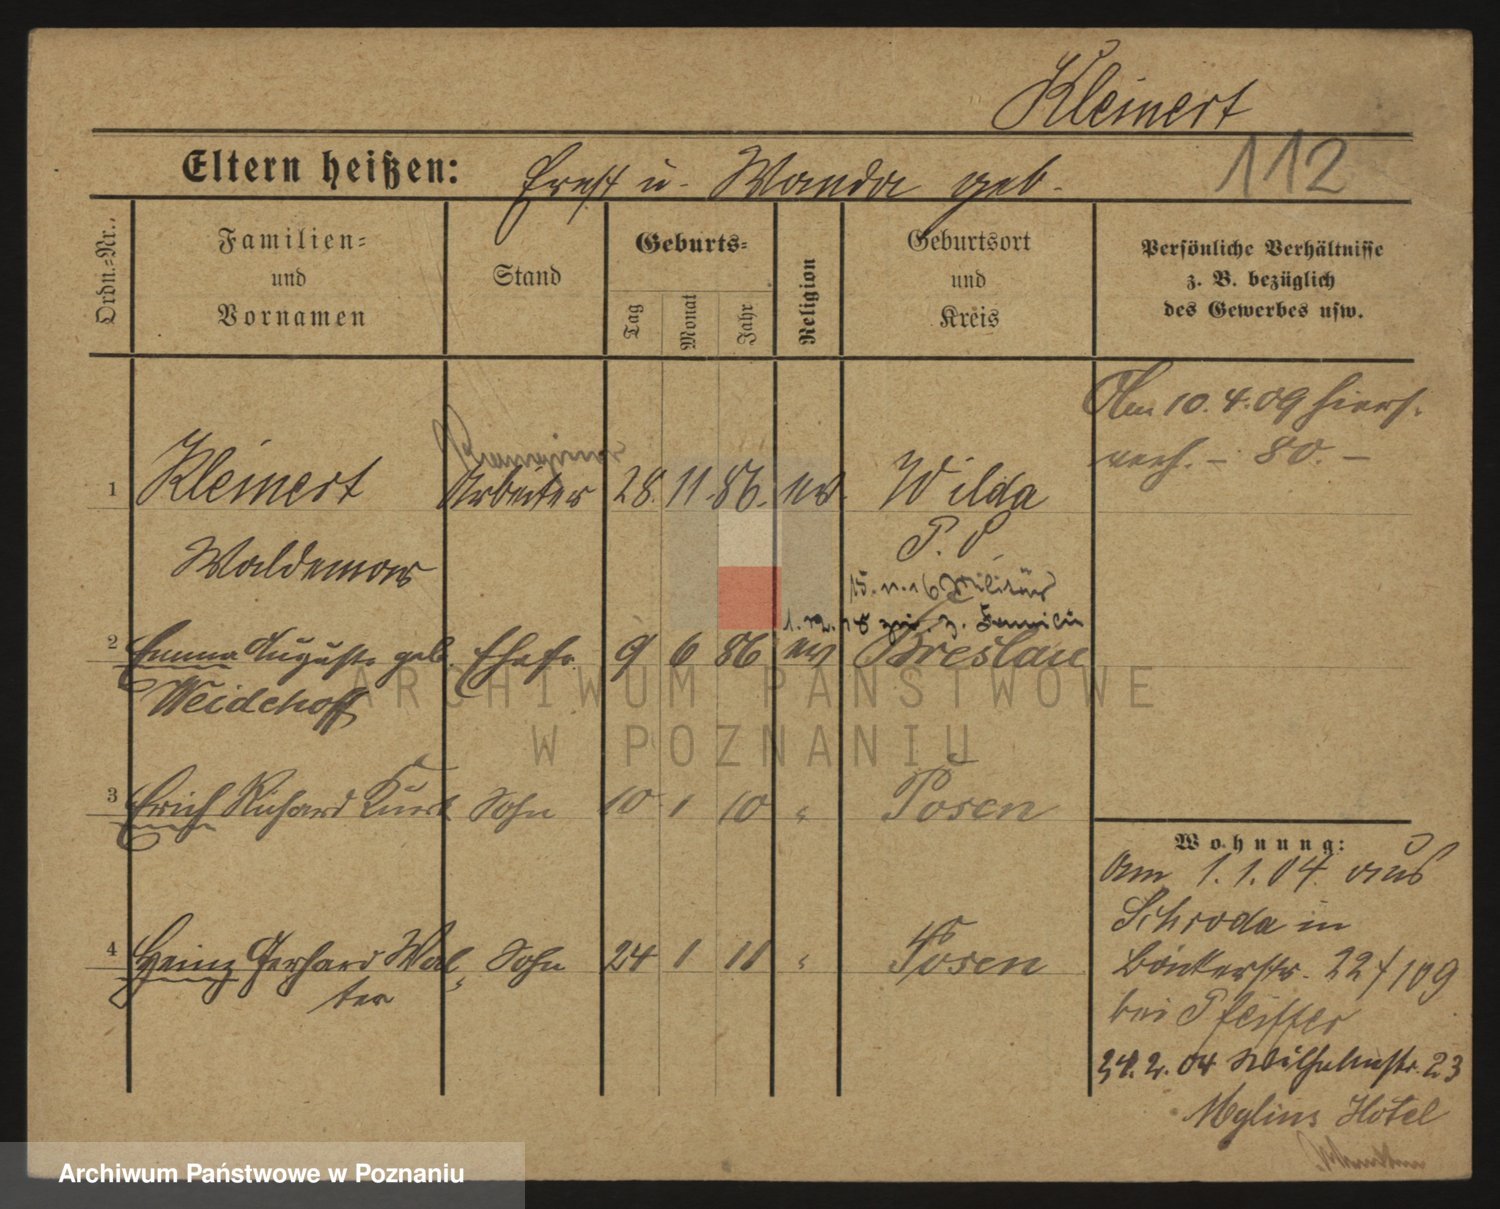 Kleinert
112
Eltern heißen: Ernst u. Wanda geb.
Ordn.-Nr.
Familien- und Vornamen
Stand
Geburts-
Tag
Monat
Jahr
Religion
Geburtsort und Kreis
Persönliche Verhältnisse
z. B. bezüglich
des Gewerbes usw.
Am 10.4.09 hiers.
verh. – 80. –
1 Kleinert Arbeiter 28. 11. 86. ev. Wilda
Waldemar P. O.
15. 11. 16 Militär
1. 12. 18 zur. z. Familie
2 Emma Auguste geb. Ehefr. 9 6 86 ev Breslau
Weidehoff
3 Erich Richard Kurt Sohn 10 1 10 " Posen
4 Heinz Gerhard Wal- Sohn 24 1 11 " Posen
ter
Wohnung:
Am 1.1.04. aus
Schroda in
Bänkerstr. 22/109
bei Pfeiffer
24.2.04 Wilhelmstr. 23
Mylius Hotel
ARCHIWUM PAŃSTWOWE
W POZNANIU
Archiwum Państwowe w Poznaniu